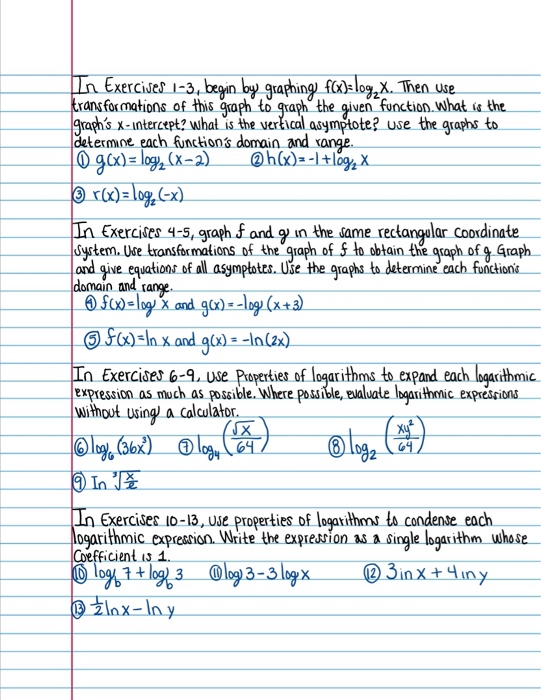 In Exercises 1-3, begin by graphing f(x)=log₂X. Then use
transformations of this graph to graph the given function. What is the
graph's x-intercept? What is the vertical asymptote? Use the graphs to
determine each function's domain and range.
① g(x) = log₂ (x-2) ② h(x) = -1 + log₂ X
③ r(x) = log₂ (-x)
In Exercises 4-5, graph f and g in the same rectangular coordinate
system. Use transformations of the graph of f to obtain the graph of g. Graph
and give equations of all asymptotes. Use the graphs to determine each function's
domain and range.
④ f(x) = log x and g(x) = -log (x+3)
⑤ f(x) = ln x and g(x) = -ln (2x)
In Exercises 6-9, use Properties of logarithms to expand each logarithmic
expression as much as possible. Where possible, evaluate logarithmic expressions
without using a calculator.
⑥ log₆ (36x³) ⑦ log₄ (√x/64) ⑧ log₂ (xy²/64)
⑨ In ³√x/2
In Exercises 10-13, use properties of logarithms to condense each
logarithmic expression. Write the expression as a single logarithm whose
Coefficient is 1.
⑩ log_b 7 + log_b 3 ⑪ log 3 - 3 log x ⑫ 3 in x + 4 in y
⑬ ½ ln x - ln y